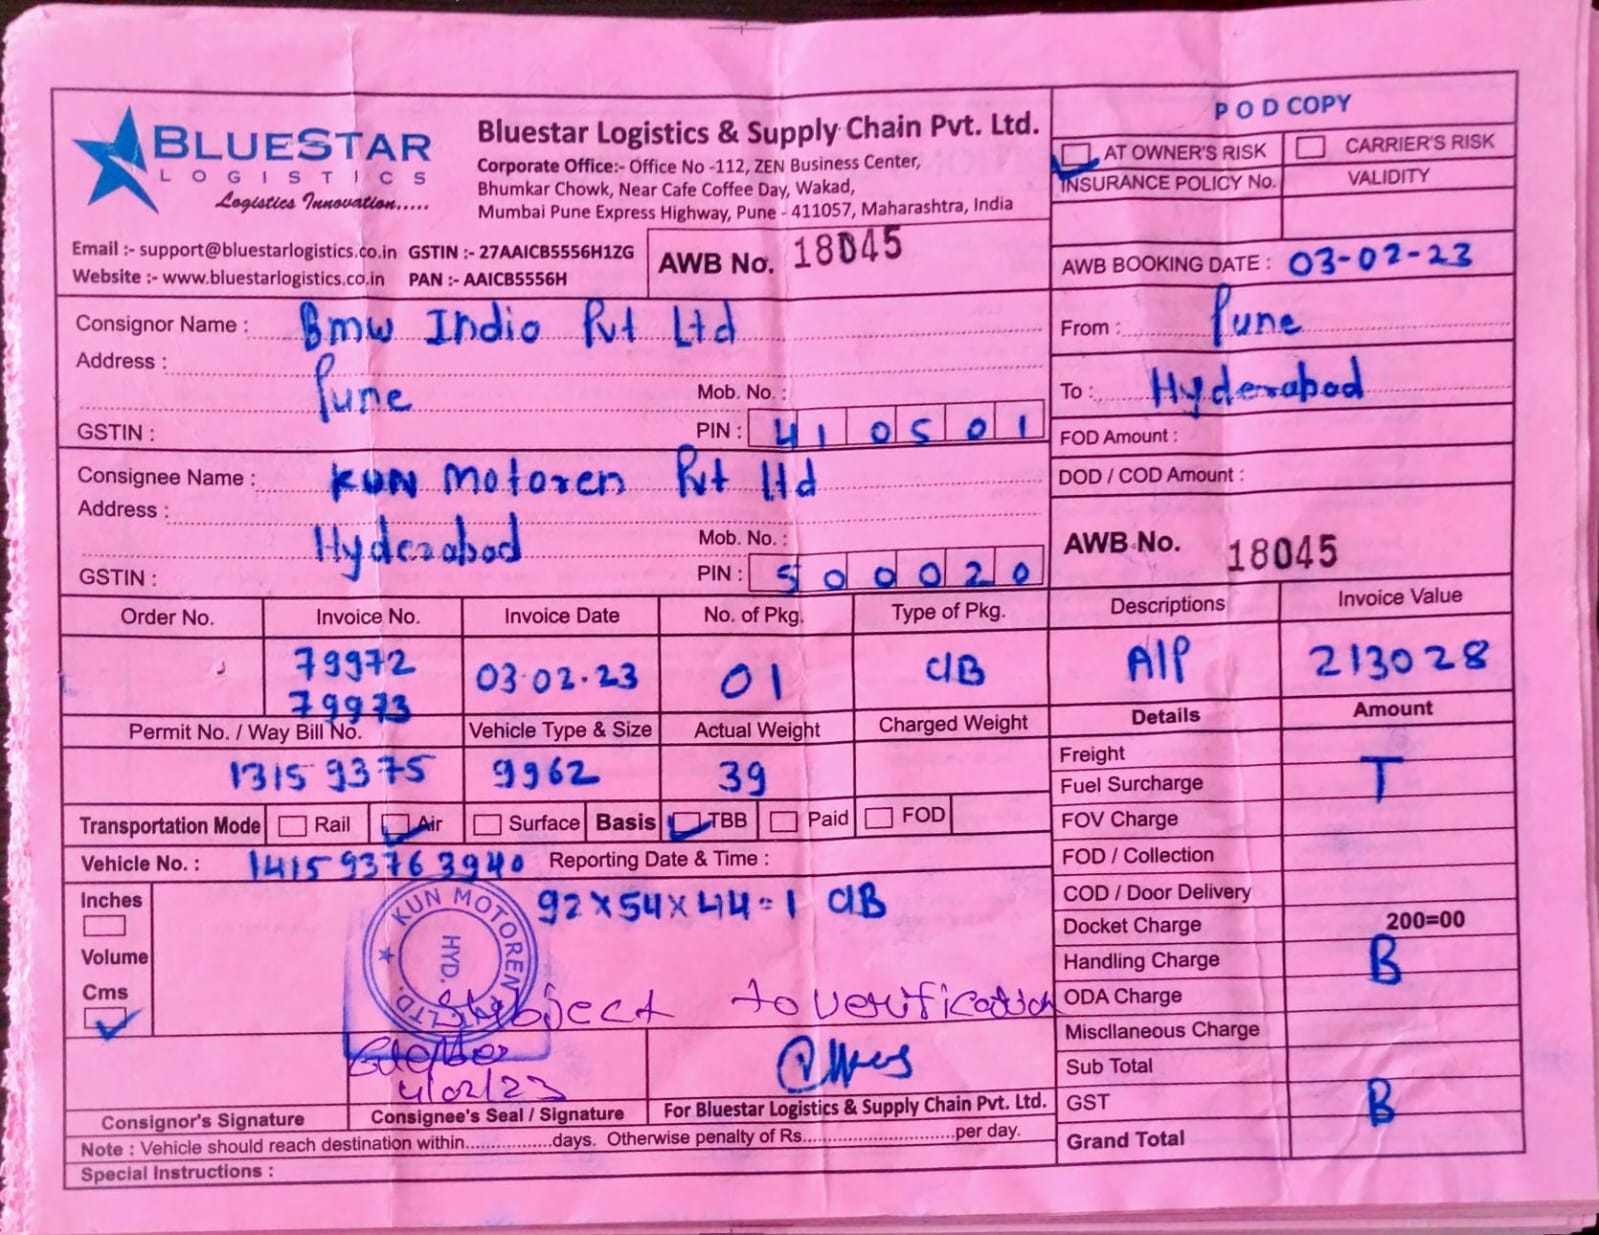 BLUESTAR
LOGISTICS
Logistics Innovation.....
Bluestar Logistics & Supply Chain Pvt. Ltd.
Corporate Office:- Office No -112, ZEN Business Center,
Bhumkar Chowk, Near Cafe Coffee Day, Wakad,
Mumbai Pune Express Highway, Pune - 411057, Maharashtra, India
Email :- support@bluestarlogistics.co.in GSTIN :- 27AAICB5556H1ZG
Website :- www.bluestarlogistics.co.in PAN :- AAICB5556H
AWB No. 18045
POD COPY
AT OWNER'S RISK CARRIER'S RISK
INSURANCE POLICY No. VALIDITY
AWB BOOKING DATE : 03-02-23
Consignor Name : Bmw Indio Pvt Ltd
Address :
Pune Mob. No. :
GSTIN : PIN : 410501
From : Pune
To : Hyderabad
FOD Amount :
DOD / COD Amount :
Consignee Name : KUN Motoren Pvt ltd
Address :
Hyderabad Mob. No. :
GSTIN : PIN : 500020
AWB No. 18045
Order No. Invoice No. Invoice Date No. of Pkg. Type of Pkg. Descriptions Invoice Value
79972 03.02.23 01 C/B A/P 213028
79973
Permit No. / Way Bill No. Vehicle Type & Size Actual Weight Charged Weight Details Amount
1315 9375 9962 39
Freight
Fuel Surcharge T
FOV Charge
FOD / Collection
COD / Door Delivery
Docket Charge 200=00
Handling Charge B
ODA Charge
Miscllaneous Charge
Sub Total
GST B
Grand Total
Transportation Mode Rail Air Surface Basis TBB Paid FOD
Vehicle No. : 141593763940 Reporting Date & Time :
Inches
Volume
Cms
92x54x44=1 C/B
KUN MOTOREN LTD.
HYD.
Subject to verification
4/02/23
Consignor's Signature Consignee's Seal / Signature For Bluestar Logistics & Supply Chain Pvt. Ltd.
Note : Vehicle should reach destination within...............days. Otherwise penalty of Rs...........................per day.
Special Instructions :